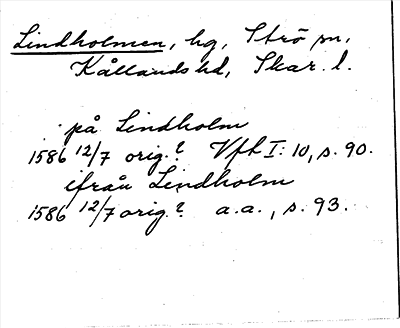 Lindholmen, hg, Strö sn,
Kållands hd, Skar. l.
på Lindholm
1586 12/7 orig.? Vft I: 10, s. 90.
ifrån Lindholm
1586 12/7 orig.? a.a., s. 93.